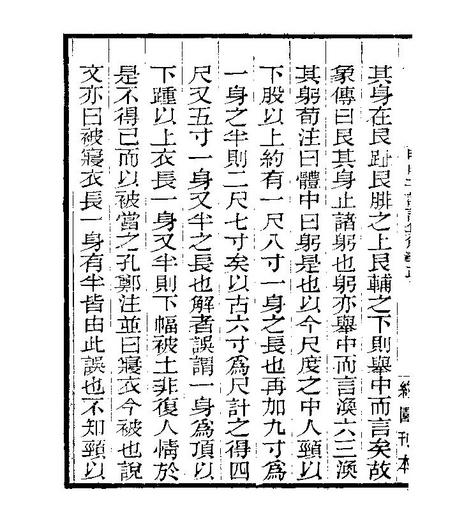 其身在艮趾艮腓之上艮輔之下則舉中而言矣故
象傳曰艮其身止諸躬也躬亦舉中而言渙六三渙
其躬荀注曰體中曰躬是也以今尺度之中人頸以
下股以上約有一尺八寸一身之長也再加九寸為
一身之半則二尺七寸矣以古六寸為尺計之得四
尺又五寸一身又半之長也解者誤謂一身為頂以
下踵以上衣長一身又半則下幅被土非復人情於
是不得已而以被當之孔鄭注並曰寢衣今被也說
文亦曰被寢衣長一身有半皆由此誤也不知頸以